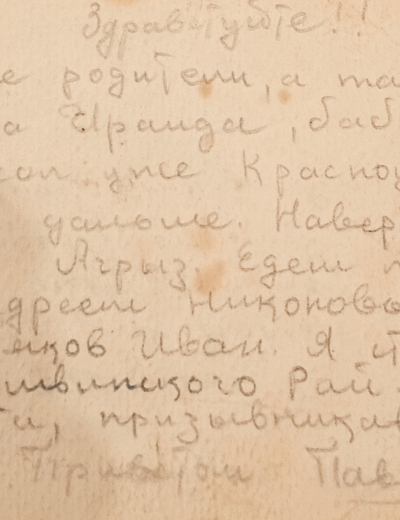 Здравствуйте!!
е родители, а та
а Ираида, баб
сол уже Красноу
дальше. Навер
Агрыз. Едем п
дреем Никоновы
енков Иван. Я и
Рай.
ти, призывника
Приветом Пав